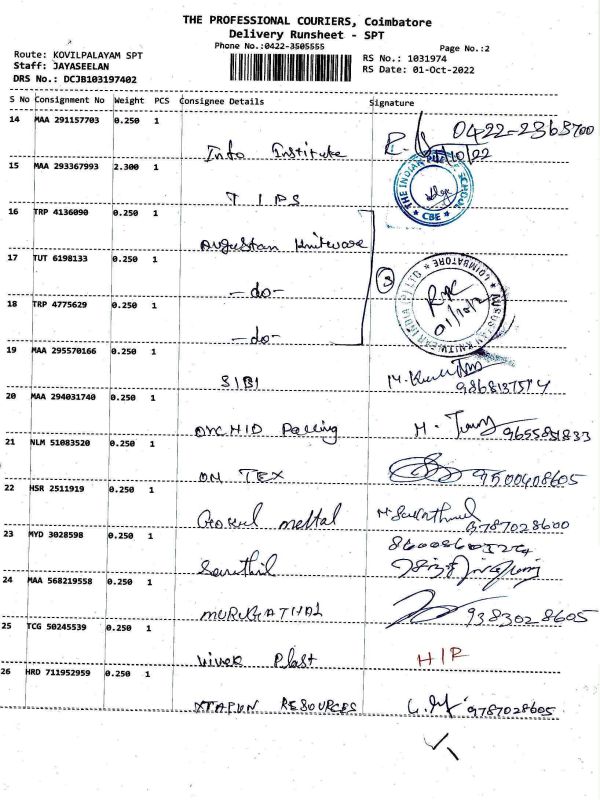 THE PROFESSIONAL COURIERS, Coimbatore
Delivery Runsheet - SPT
Phone No.:0422-3505555
Page No.:2
Route: KOVILPALAYAM SPT
Staff: JAYASEELAN
DRS No.: DCJB103197402
RS No.: 1031974
RS Date: 01-Oct-2022
S No Consignment No Weight PCS Consignee Details Signature
14 MAA 291157703 0.250 1
Info Institute 0422-2363700
15 MAA 293367993 2.300 1
T I P S
THE INDIAN SCHOOL
★ CBE ★
16 TRP 4136090 0.250 1
Augustan Knitware
17 TUT 6198133 0.250 1
-do-
3
COIMBATORE
18 TRP 4775629 0.250 1
-do-
19 MAA 295570166 0.250 1
SIBI
20 MAA 294031740 0.250 1
ORCHID Packing 9655831833
21 NLM 51083520 0.250 1
ON TEX 9500408605
22 HSR 2511919 0.250 1
Gokul mettal 9787028600
23 MYD 3028598 0.250 1
Senthil
24 MAA 568219558 0.250 1
MURUGATHAL 9383028605
25 TCG 50245539 0.250 1
Vivek Plast H/R
26 HRD 711952959 0.250 1
RESOURCES 9787028605